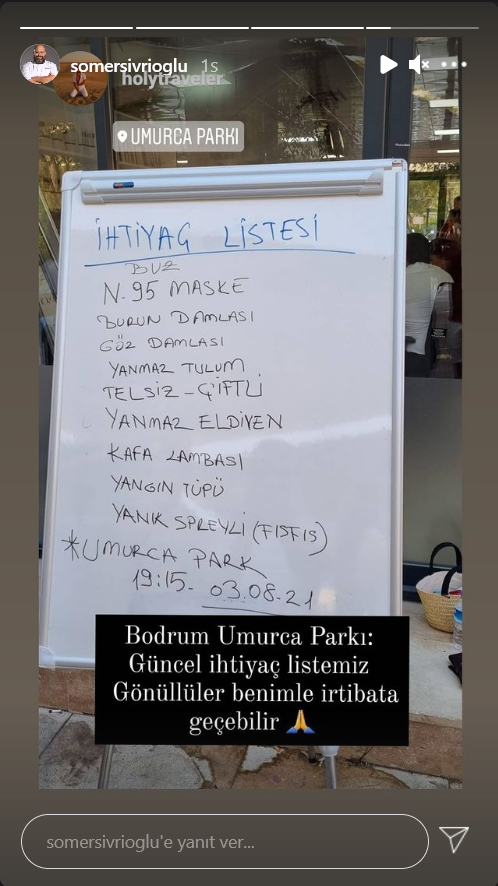 somersivrioglu 1s
holytraveler
UMURCA PARKI
İHTİYAÇ LİSTESİ
BUZ
N-95 MASKE
BURUN DAMLASI
GÖZ DAMLASI
YANMAZ TULUM
TELSİZ - ÇİFTLİ
YANMAZ ELDİVEN
KAFA LAMBASI
YANGIN TÜPÜ
YANIK SPREYLİ (FISFIS)
*UMURCA PARK
19:15- 03.08.21
Bodrum Umurca Parkı:
Güncel ihtiyaç listemiz
Gönüllüler benimle irtibata
geçebilir 🙏
somersivrioglu'e yanıt ver...